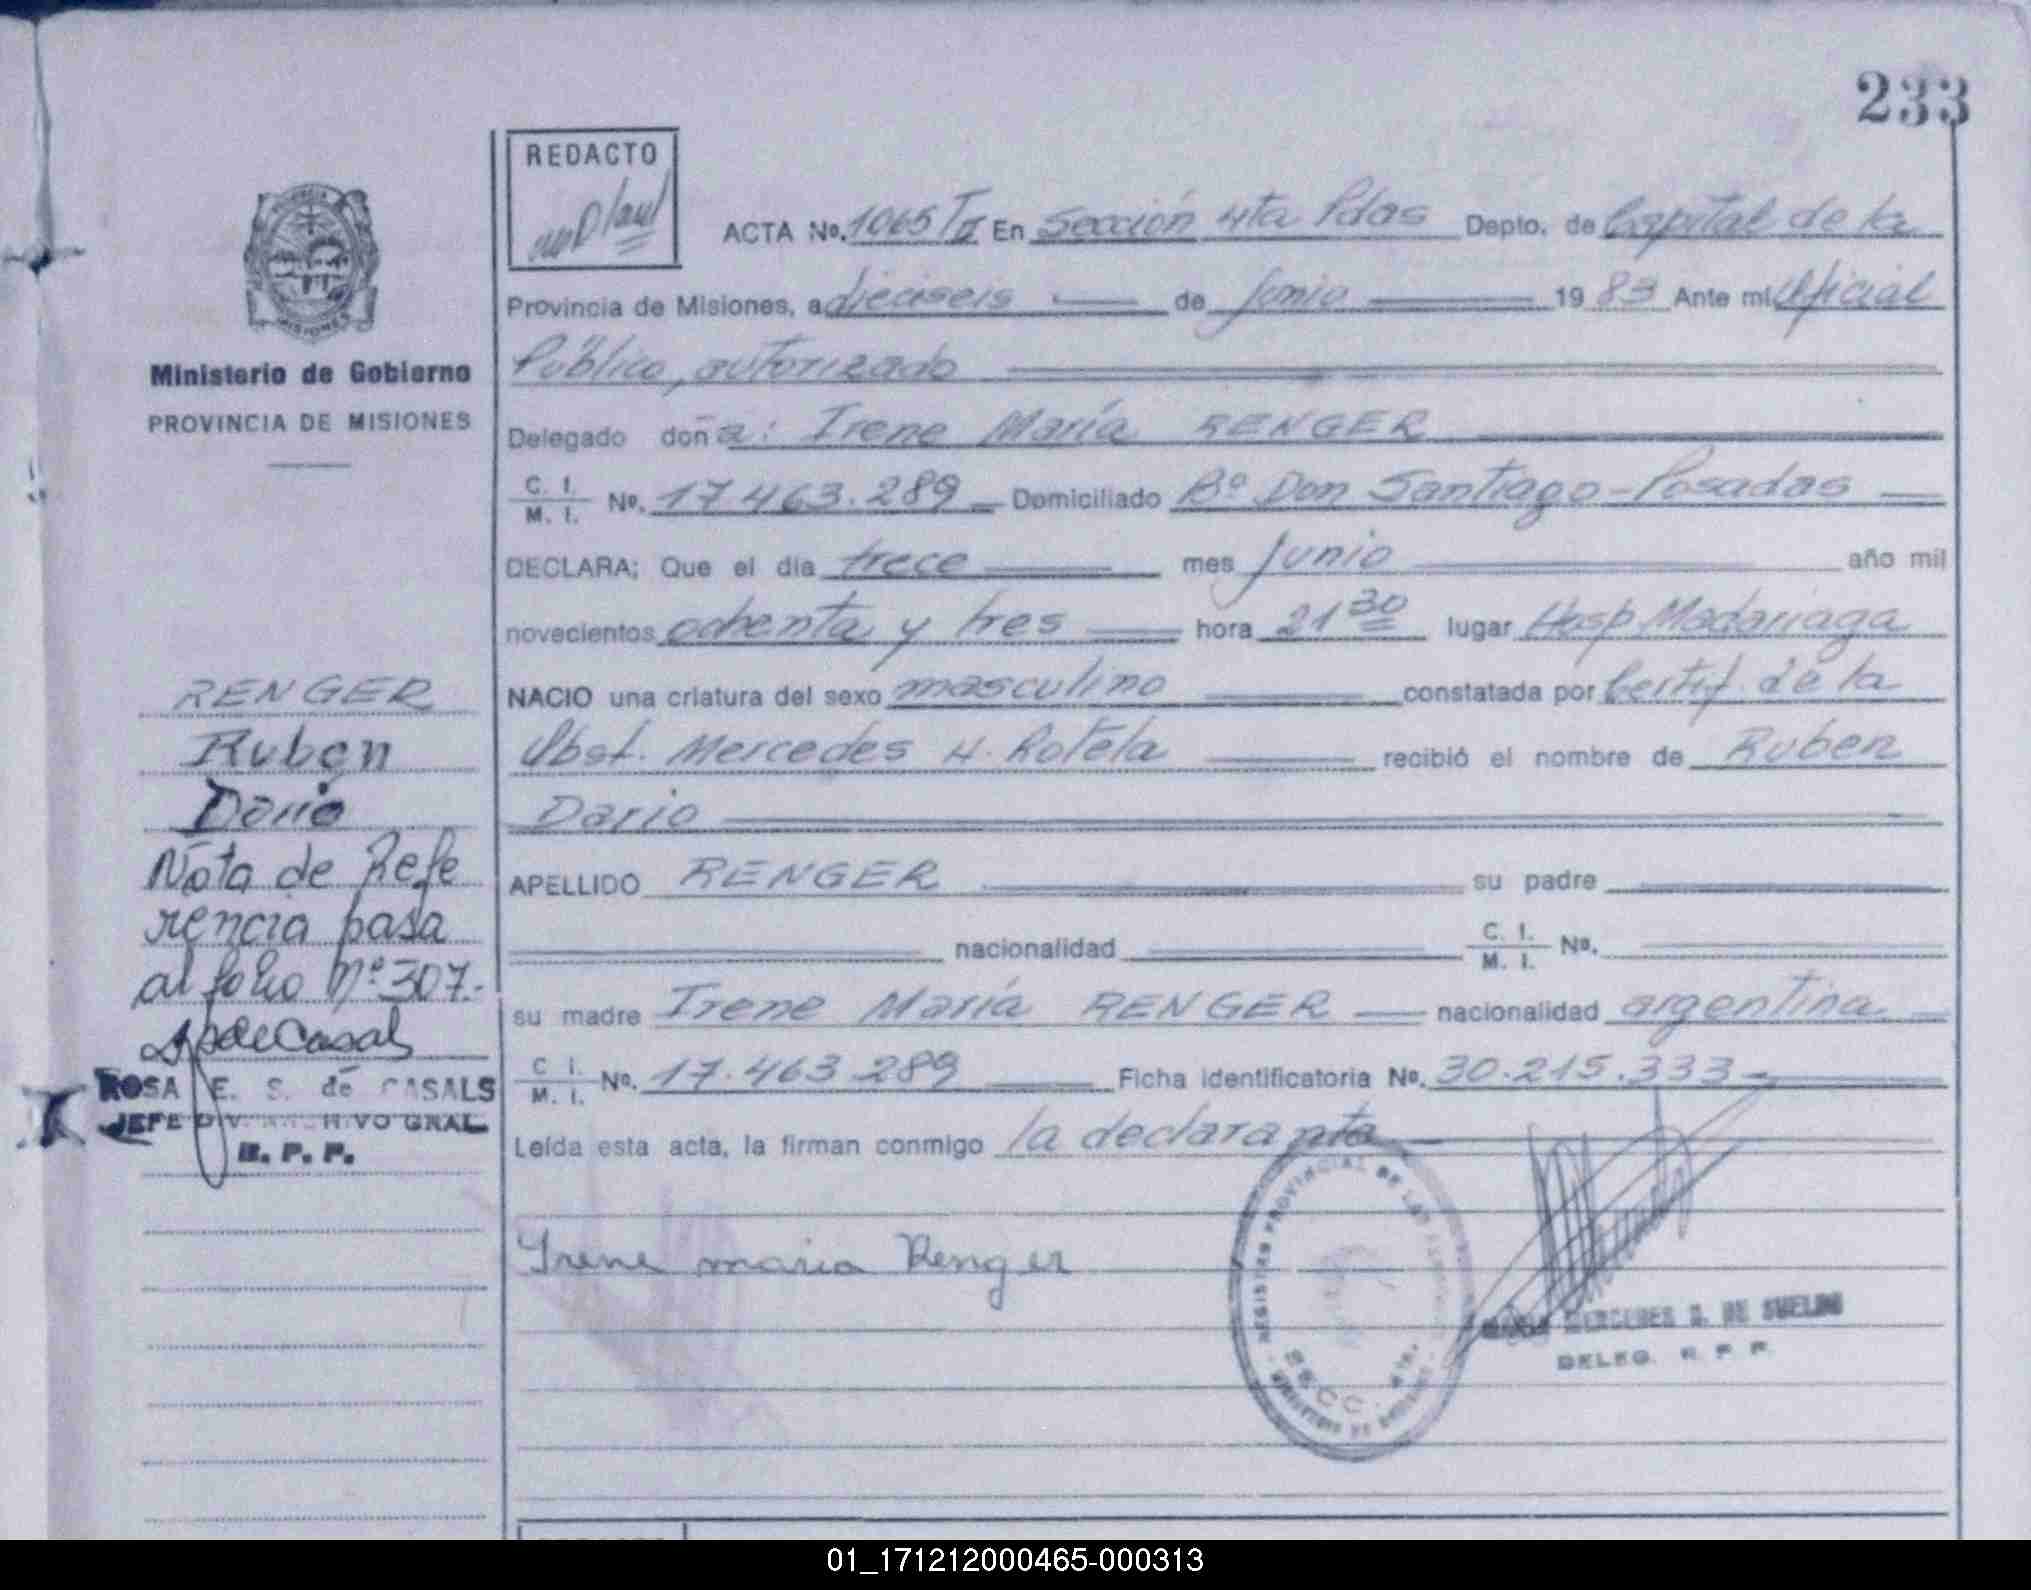 233
REDACTO
ACTA No. 1065 T II En Sección 4ta Pdas Depto. de Capital de la
Provincia de Misiones, a dieciseis de Junio 19 83 Ante mi Oficial
Público, autorizado
Delegado doña: Irene María RENGER
C. I. M. I. No. 17.463.289 Domiciliado Bº Don Santiago - Posadas
DECLARA; Que el día trece mes Junio año mil
novecientos ochenta y tres hora 21 30 lugar Hosp. Madariaga
NACIO una criatura del sexo masculino constatada por Certif. de la
Obst. Mercedes H. Rotela recibió el nombre de Ruben
Dario
APELLIDO RENGER su padre
nacionalidad C. I. M. I. No.
su madre Irene María RENGER nacionalidad argentina
C. I. M. I. No. 17.463.289 Ficha identificatoria No. 30.215.333
Leída esta acta, la firman conmigo la declarante
Irene maria Renger
REGISTRO PROVINCIAL DE LAS
SECC. 4ta.
MERCEDES
DELEG. R. P. P.
PROVINCIA
MISIONES
Ministerio de Gobierno
PROVINCIA DE MISIONES
RENGER
Ruben
Dario
Nota de Refe
rencia pasa
al folio Nº 307.-
ROSA E. S. de CASALS
JEFE DIV. ARCHIVO GRAL
R. P. P.
01_171212000465-000313